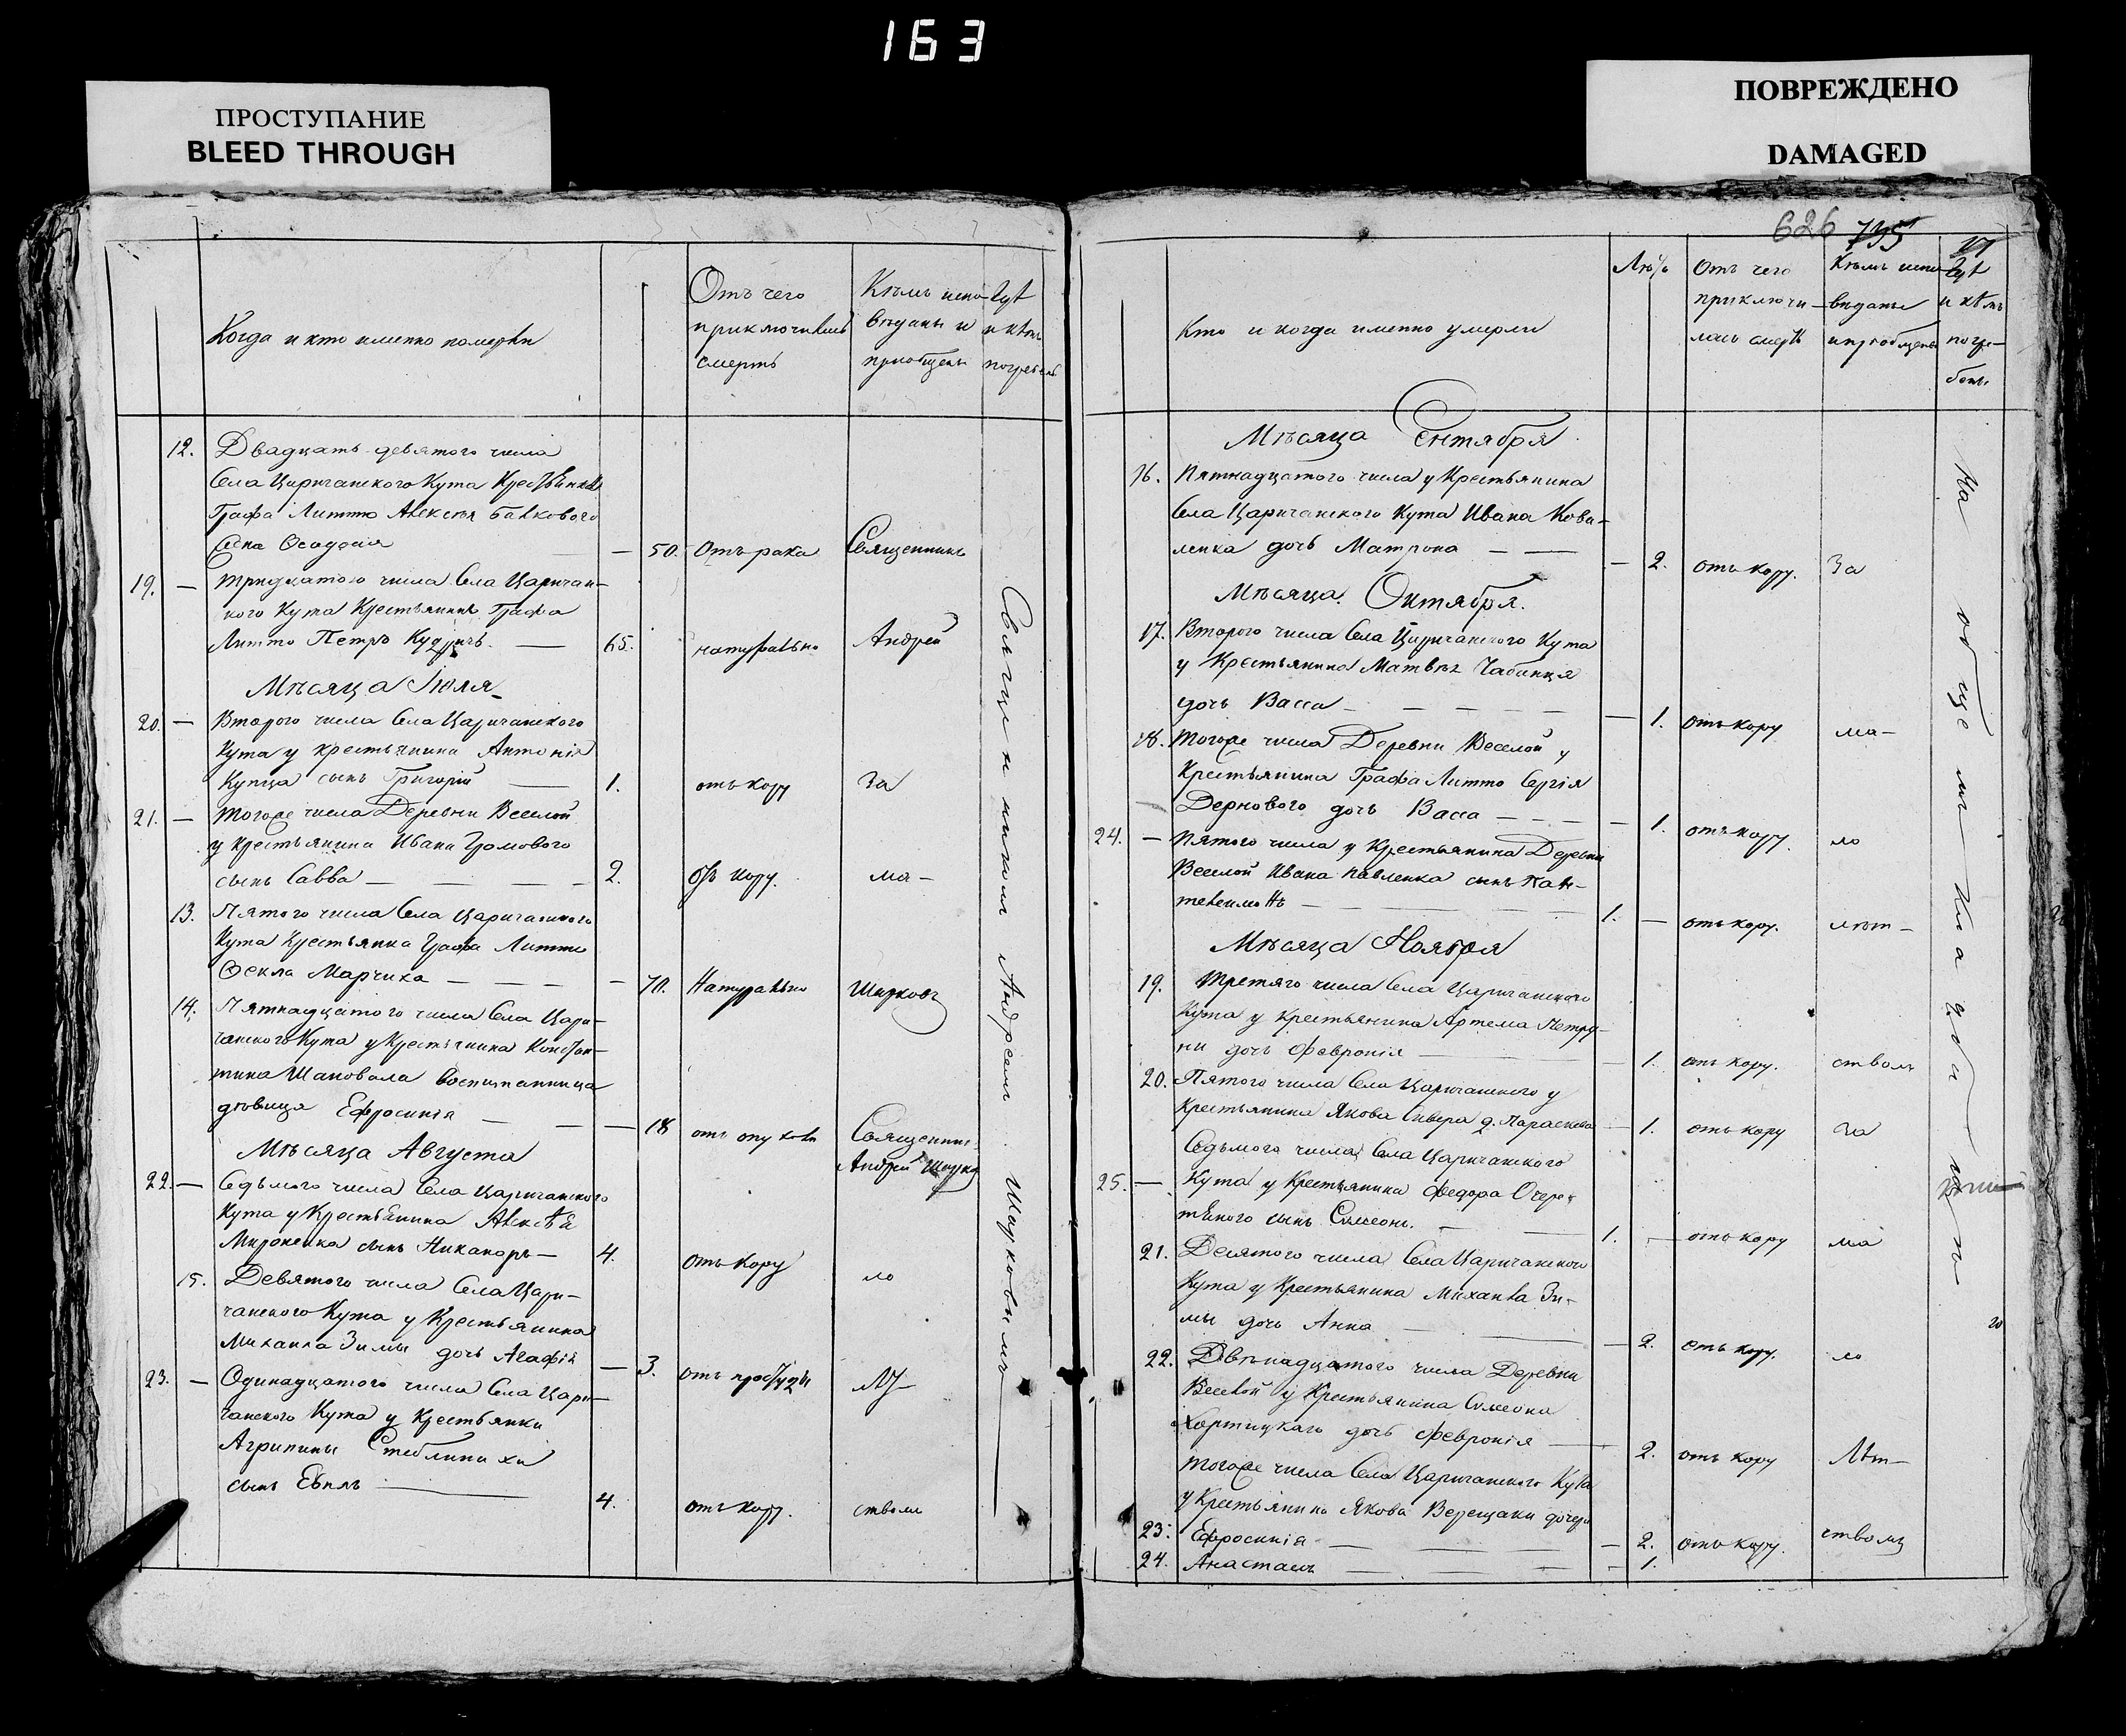 163
ПРОСТУПАНИЕ
BLEED THROUGH
ПОВРЕЖДЕНО
DAMAGED
Когда и кто именно померли
Отъ чего
приключилась
смерть
Кѣмъ испо-
вѣданы и
приобщены
гдѣ
и кѣмъ
погребены
12. Двадцать девятого числа
Села Царичанского Кута Крестьянка
Графа Литто Алексѣя
— 50. Отъ рака Священникъ
19. — тридцатого числа Села Царичан-
ского Кута Крестьянинъ Графа
Литто Петръ — 65. натурально Андрей
Мѣсяца Іюля
20. — Второго числа Села Царичанского
Кута у крестьянина Антонія
Купца сынъ Григорій — 1. отъ кору За
21. — тогоже числа Деревни Веселой
у крестьянина Ивана Громового
сынъ Савва — — — 2. отъ кору. ма-
13. Пятого числа Села Царичанского
Кута Крестьянка Графа Литто
Ѳекла Марчиха — — — 70. Натурально Шидковъ
14. Пятнадцатого числа Села Цари-
чанского Кута у Крестьянина Констан-
тина Шаповала воспитанница
дѣвица Ефросинія — — — 18 отъ опухоли Священник
Андрей
Мѣсяца Августа
22. — Седьмого числа Села Царичанского
Кута у Крестьянина Алексѣя
Мироненка сынъ Никаноръ — 4. отъ кору ло
15. Девятого числа Села Цари-
чанского Кута у Крестьянина
Михаила Зимы дочь Агафія — 3. отъ простуды лѣ
23. — Одинадцатого числа Села Цари-
чанского Кута у Крестьянки
Агрипины Стеблинихи
сынъ — 4. отъ кору. ством
Священникомъ Андреемъ Шидковымъ
626 735
Кто и когда именно умерли
Лѣта
Отъ чего
приключи-
лась смерть
Кѣмъ испо-
вѣданы
и приобщены
гдѣ
и кѣмъ
погре-
бены
Мѣсяца Сентября
16. Пятнадцатого числа у Крестьянина
Села Царичанского Кута Ивана Кова-
ленка дочь Матрона — — — 2. отъ кору. За
Мѣсяца Октября.
17. Второго числа Села Царичанского Кута
у Крестьянина Матвѣя
дочь Васса — — — — 1. отъ кору ма-
18. тогоже числа Деревни Веселой у
Крестьянина Графа Литто Сергія
Дернового дочь Васса — — — 1. отъ кору. ло
24. — Пятого числа у Крестьянина Деревни
Веселой Ивана Павленка сынъ Пан-
телеимонъ — — 1. — отъ кору. лѣт-
Мѣсяца Ноября
19. третяго числа Села Царичанского
Кута у Крестьянина Артема Петру-
ни дочь Февронія — — 1. отъ кору. ством
20. Пятого числа Села Царичанского у
Крестьянина Якова Сивера д. Параскева — 1. отъ кору За
Седьмого числа Села Царичанского
25. — Кута у Крестьянина Федора Очере-
тяного сынъ Симеонъ. — — 1. — отъ кору ма
21. Десятого числа Села Царичанского
Кута у Крестьянина Михаила Зи-
мы дочь Анна — — — 2. отъ кору. ло
22. Двѣнадцатого числа Деревни
Веселой у Крестьянина Симеона
Хортицкаго дочь Февронія — 2. отъ кору Лѣт-
тогоже числа Села Царичанского Кута
у Крестьянина Якова Верещаки дочери
23. Ефросинія — — — 2. отъ кору. ством
24. — — — 1.
На общемъ кладби